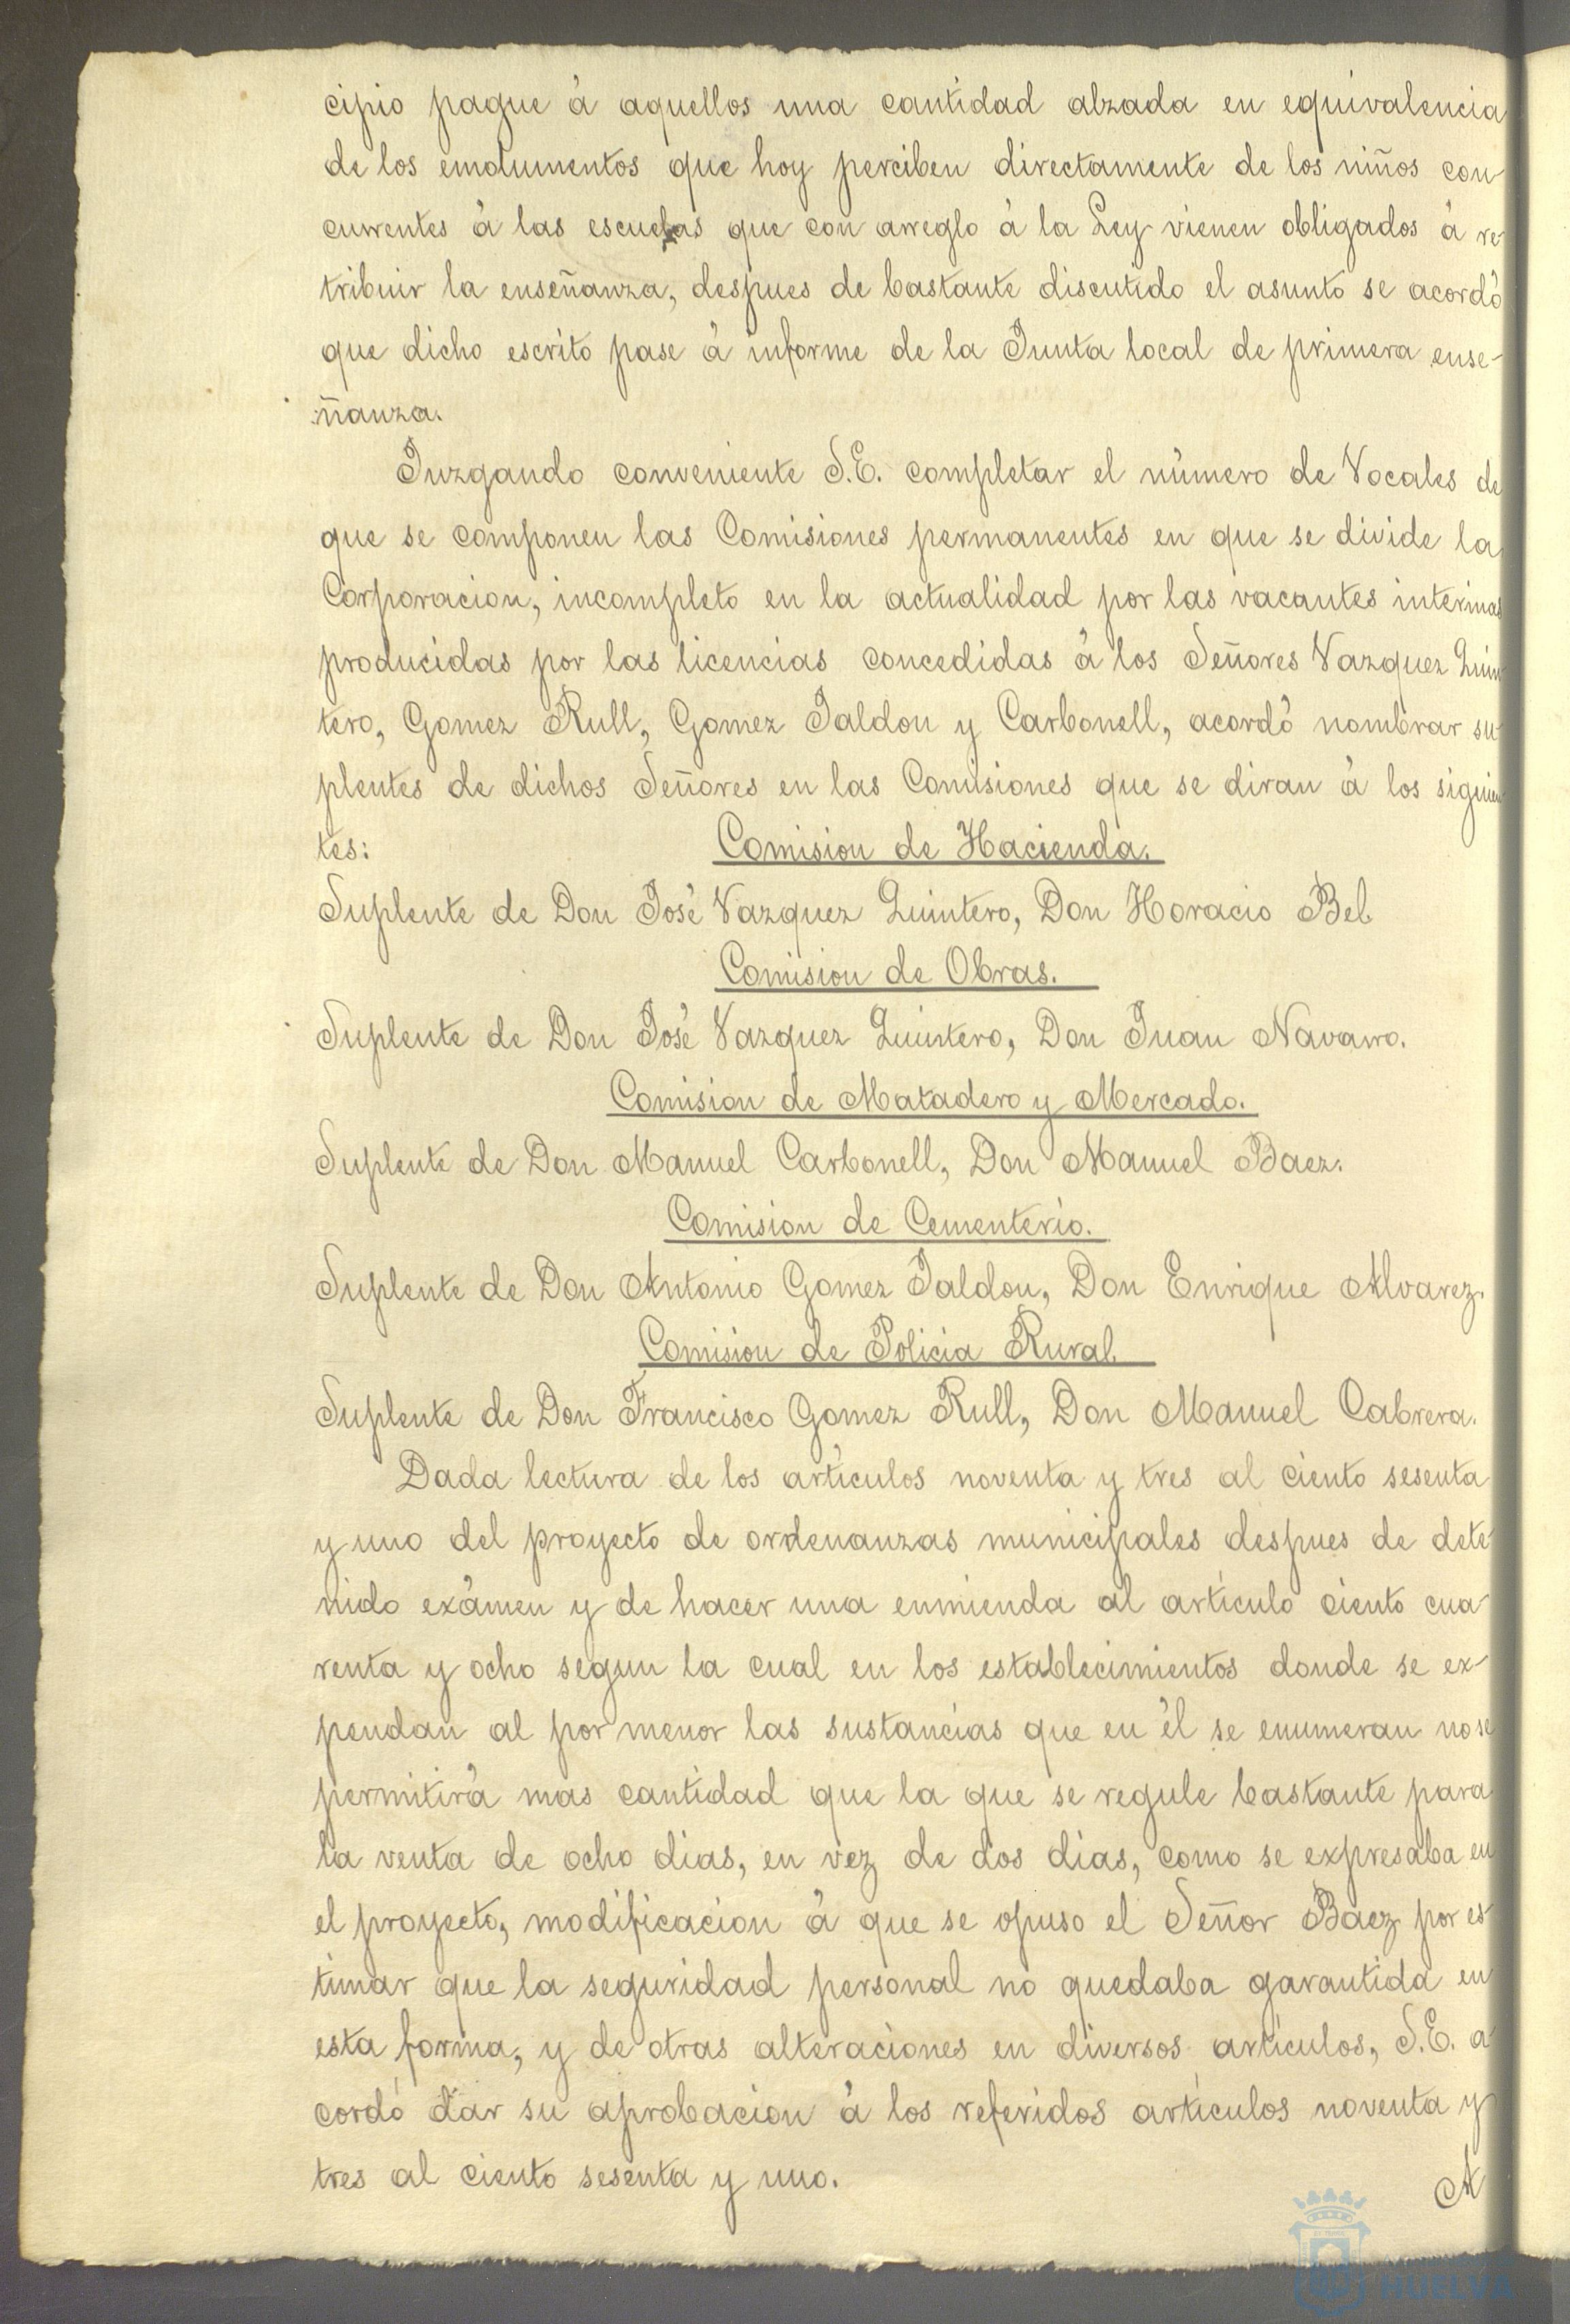 cipio pague á aquellos una cantidad alzada en equivalencia
de los emolumentos que hoy perciben directamente de los niños con
currentes á las escuelas que con arreglo á la Ley vienen obligados á re
tribuir la enseñanza, despues de bastante discutido el asunto se acordó
que dicho escrito pase á informe de la Junta local de primera ense-
ñanza.
Juzgando conveniente S.E. completar el número de Vocales de
que se componen las Comisiones permanentes en que se divide la
Corporacion, incompleto en la actualidad por las vacantes interinas
producidas por las licencias concedidas á los Señores Vazquez Quin
tero, Gomez Rull, Gomez Jaldon y Carbonell, acordó nombrar su
plentes de dichos Señores en las Comisiones que se diran á los siguien
tes: Comision de Hacienda.
Suplente de Don José Vazquez Quintero, Don Horacio Bel
Comision de Obras.
Suplente de Don José Vazquez Quintero, Don Juan Navarro.
Comision de Matadero y Mercado.
Suplente de Don Manuel Carbonell, Don Manuel Baez.
Comision de Cementerio.
Suplente de Don Antonio Gomez Jaldon, Don Enrique Alvarez.
Comision de Policia Rural.
Suplente de Don Francisco Gomez Rull, Don Manuel Cabrera.
Dada lectura de los artículos noventa y tres al ciento sesenta
y uno del proyecto de ordenanzas municipales despues de dete
nido exámen y de hacer una enmienda al artículo ciento cua
renta y ocho segun la cual en los establecimientos donde se ex-
pendan al por menor las sustancias que en él se enumeran no se
permitirá mas cantidad que la que se regule bastante para
la venta de ocho dias, en vez de dos dias, como se expresaba en
el proyecto, modificacion á que se opuso el Señor Baez por es
timar que la seguridad personal no quedaba garantida en
esta forma, y de otras alteraciones en diversos artículos, S.E. a
cordó dar su aprobacion á los referidos artículos noventa y
tres al ciento sesenta y uno.
A
HUELVA